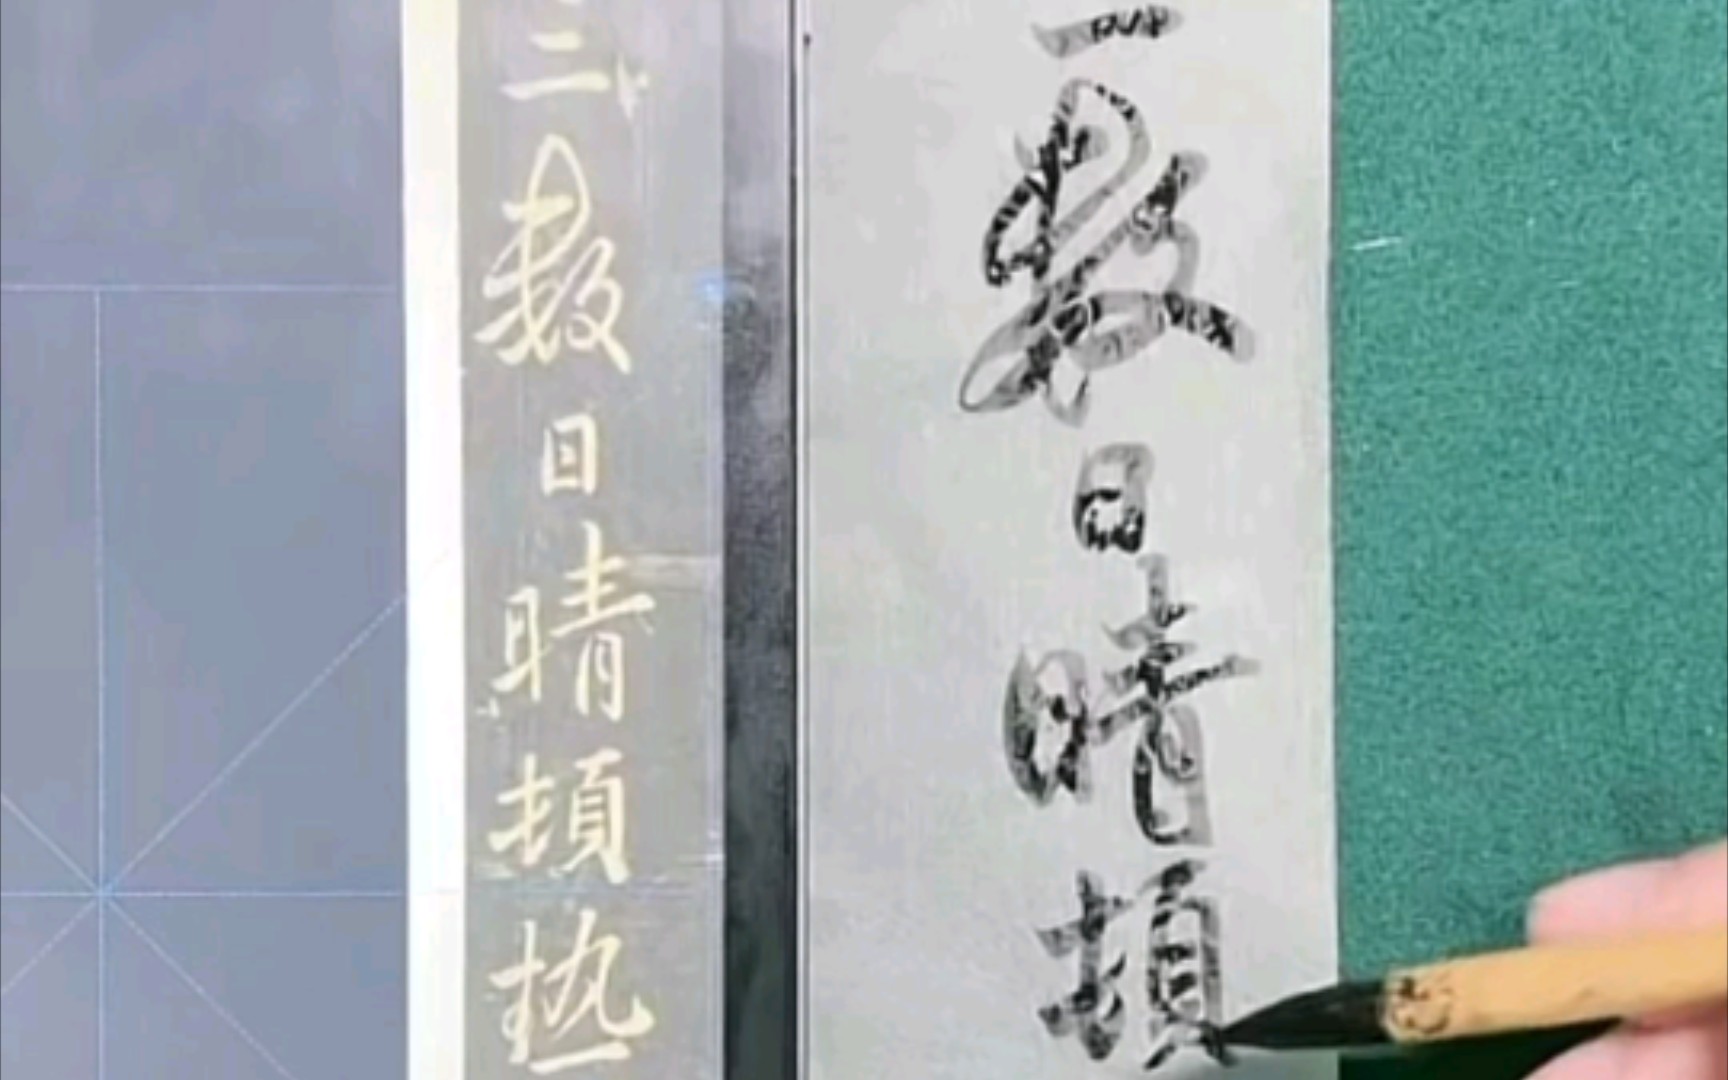 三數日晴頓熱
數日晴頓